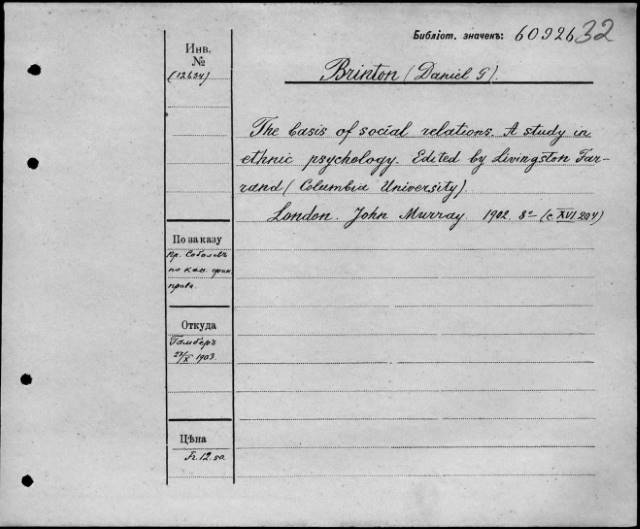 Библіот. значенъ: 6092632
Инв.
№
(12634)
Brinton (Daniel G).
The basis of social relations. A study in
ethnic psychology. Edited by Livingston Far-
rand (Columbia University).
London. John Murray 1902. 8º (с XVI 204)
По заказу
Пр. Соболевъ
по кал.
права.
Откуда
Гамберъ
27/X 1903.
Цѣна
Fr. 12.50